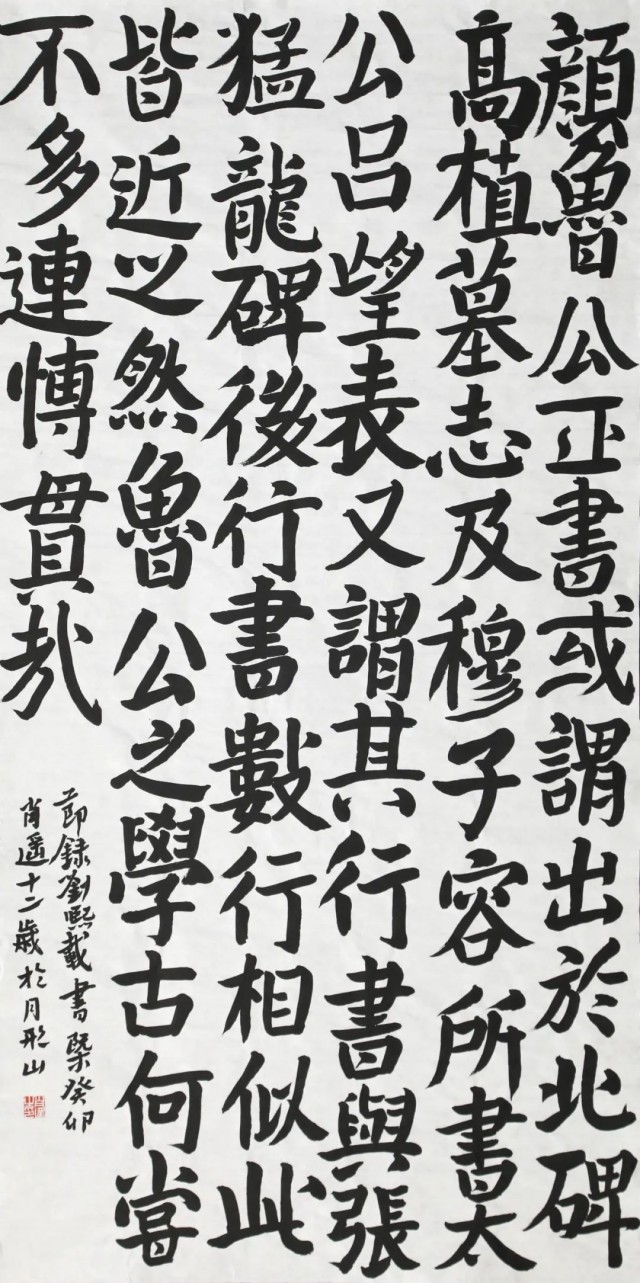 顔魯公正書或謂出於北碑
高植墓志及穆子容所書太
公呂望表又謂其行書與張
猛龍碑後行書數行相似此
皆近之然魯公之學古何嘗
不多連愽貫哉
節録劉熙載書槩癸卯
肖遥十二歲於月形山